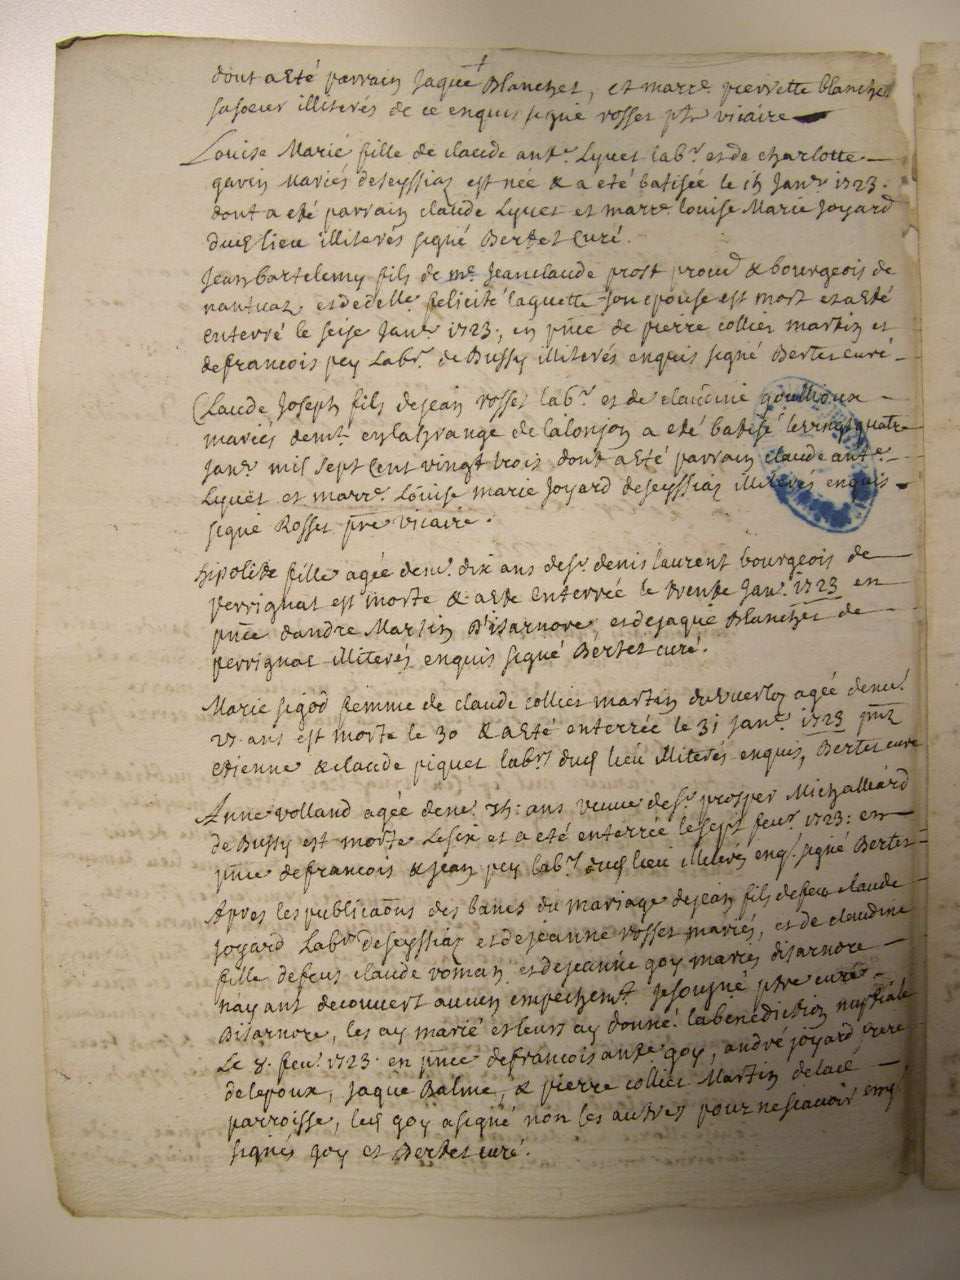 dont a Eté parrain Jaque Blanchet, et marr.e pierrette blanchet
sa soeur illiterés de ce enquis signé rosset ptr vicaire
Louise Marie fille de claude ant.e Lyuet lab.r et de charlotte
gavin Mariés deseyssiaz est née & a eté batisée le 15 Janv.r 1723.
dont a eté parrain claude Lyuet et marr.e louise Marie Joyard
dud lieu illiterés signé Bertet Curé.
Jean bartelemy fils de m.e Jean claude prost procu.r & bourgeois de
nantuaz et de d.elle felicité laguette son epouse est mort et a Eté
enterré le seise Janv.r 1723, en pnce de pierre collier martin et
de francois pey Lab.rs de Bussy illiterés enquis signé Bertet curé
Claude Joseph fils de jean rosset lab.r et de claudine goullioux
mariés dem.t en la Grange de lalonjon a eté batisé le vingt quatre
Janv.r mil sept Cent vingt trois dont a Eté parrain claude ant.e
Lyuet et marr.e Louise marie Joyard deseyssiaz illiterés enquis
signé Rosset ptre vicaire.
hipolite fille agée denv.r dix ans de s.r denis laurent bourgeois de
perrignat est morte & a Eté Enterrée le trente Jan.r 1723 en
pnce dandre Martin D'isarnore, et de jaque Blanchet de
perrignat illiterés enquis signé Bertet curé.
Marie sigod femme de claude collier martin agée denv.r
27 ans est morte le 30 & a Eté enterrée le 31 janv.r 1723 pnce
etienne & claude piquet lab.rs dud lieu illiterés enquis, Bertet curé
Anne volland agée denv.r 75: ans veuve de s.r prosper Michalliard
de Bussy est morte Lesix et a eté enterrée le sept fev.r 1723: en
pnce de francois & jean pey lab.rs dud lieu illiterés enq.s signé Bertet
Apres les publicaōns des bancs du mariage de jean fils de feu claude
joyard Lab.r deseyssiaz et de jeanne rosset mariés, et de claudine
fille de feus claude roman et de jeanne goy mariés disarnore
nayant decouvert aucun empechem.t Je sousigné ptre curé
Disarnore, les ay marié et leurs ay donné la benediction nuptiale
Le 8. fev.r 1723. en pnce de francois ant.e goy, andré joyard frere
delepoux, Jaque Balme, & pierre collier Martin de lad
parroisse, led goy a signé non les autres pour ne scavoir enq.s
signés goy et Bertet curé.